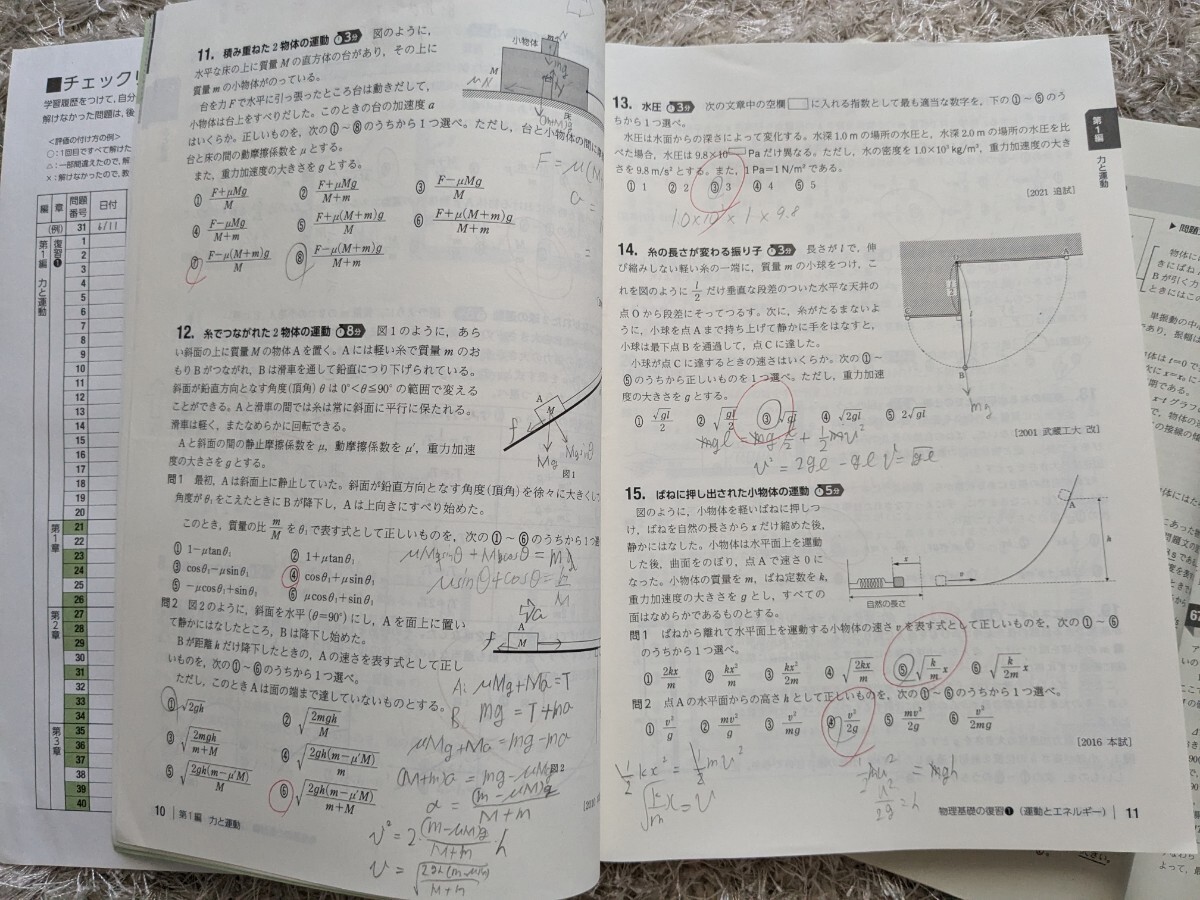 ■チェックリ
学習履歴をつけて,自分
解けなかった問題は,後
<評価の付け方の例>
○:1回目ですべて解けた
△:一部間違えたので,解
×:解けなかったので,教
編 章 問題番号 日付
(例) 31 6/11
第1編 力と運動
復習❶
1
2
3
4
5
6
7
8
9
10
11
12
13
14
15
16
17
18
19
20
第1章
21
22
23
24
25
26
第2章
27
28
29
30
31
32
33
34
第3章
35
36
37
38
39
40
11. 積み重ねた2物体の運動 3分 図のように,
水平な床の上に質量Mの直方体の台があり,その上に
質量mの小物体がのっている。
台を力Fで水平に引っ張ったところ台は動きだして,
小物体は台上をすべりだした。このときの台の加速度a
はいくらか。正しいものを,次の①~⑧のうちから1つ選べ。ただし,台と小物体の間に摩
台と床の間の動摩擦係数をμとする。
また,重力加速度の大きさをgとする。
① F+μMg/M ② F+μMg/M+m ③ F-μMg/M
④ F-μMg/M+m ⑤ F+μ(M+m)g/M ⑥ F+μ(M+m)g/M+m
⑦ F-μ(M+m)g/M ⑧ F-μ(M+m)g/M+m
小物体
N
mg
M
μN
床
F = μ(M
a =
12. 糸でつながれた2物体の運動 8分 図1のように,あら
い斜面の上に質量Mの物体Aを置く。Aには軽い糸で質量mのお
もりBがつながれ,Bは滑車を通して鉛直につり下げられている。
斜面が鉛直方向となす角度(頂角)θは0°<θ≦90°の範囲で変える
ことができる。Aと滑車の間では糸は常に斜面に平行に保たれる。
滑車は軽く,またなめらかに回転できる。
Aと斜面の間の静止摩擦係数をμ,動摩擦係数をμ',重力加速
度の大きさをgとする。
A
M
f
Mg
Mgsinθ
図1
問1 最初,Aは斜面上に静止していた。斜面が鉛直方向となす角度(頂角)を徐々に大きくし
角度がθ₁をこえたときにBが降下し,Aは上向きにすべり始めた。
このとき,質量の比 m/M をθ₁で表す式として正しいものを,次の①~⑥のうちから1つ選
① 1-μtanθ₁ ② 1+μtanθ₁
③ cosθ₁-μsinθ₁ ④ cosθ₁+μsinθ₁
⑤ -μcosθ₁+sinθ₁ ⑥ μcosθ₁+sinθ₁
μMgsinθ + Mgcosθ = mg
μsinθ + cosθ = m/M
問2 図2のように,斜面を水平(θ=90°)にし,Aを面上に置い
て静かにはなしたところ,Bは降下し始めた。
Bが距離hだけ降下したときの,Aの速さを表す式として正し
いものを,次の①~⑥のうちから1つ選べ。
ただし,このときAは面の端まで達していないものとする。
① √2gh ② √2mgh/M
③ √2mgh/m+M ④ √2gh(m-μ'M)/m
⑤ √2gh(m-μ'M)/M ⑥ √2gh(m-μ'M)/m+M
a
f
A
M
図2
A: μMg+Ma=T
B. mg = T+ma
μMg+Ma=mg-ma
(M+m)a = mg-μMg
a = (m-μM)g/M+m
v² = 2・(m-μM)g/M+m・h
v = √2gh(m-μM)/M+m
10 第1編 力と運動
13. 水圧 3分 次の文章中の空欄□に入れる指数として最も適当な数字を,下の①~⑤のう
ちから1つ選べ。
水圧は水面からの深さによって変化する。水深1.0mの場所の水圧と,水深2.0mの場所の水圧を比
べた場合,水圧は9.8×10□Paだけ異なる。ただし,水の密度を1.0×10³kg/m³,重力加速度の大き
さを9.8m/s²とする。また,1Pa=1N/m²である。
① 1 ② 2 ③ 3 ④ 4 ⑤ 5
[2021 追試]
1.0×10³×1×9.8
第1編 力と運動
14. 糸の長さが変わる振り子 3分 長さがlで,伸
び縮みしない軽い糸の一端に,質量mの小球をつけ,こ
れを図のように l/2 だけ垂直な段差のついた水平な天井の
点Oから段差にそってつるす。次に,糸がたるまないよ
うに,小球を点Aまで持ち上げて静かに手をはなすと,
小球は最下点Bを通過して,点Cに達した。
小球が点Cに達するときの速さはいくらか。次の①~
⑤のうちから正しいものを1つ選べ。ただし,重力加速
度の大きさをgとする。
① √gl/2 ② √gl/2 ③ √gl ④ √2gl ⑤ 2√gl
[2001 武蔵工大 改]
A
l/2
l
B
mg
mgl = mg l/2 + 1/2 mv²
v² = 2gl - gl v = √gl
15. ばねに押し出された小物体の運動 5分
図のように,小物体を軽いばねに押しつ
け,ばねを自然の長さからxだけ縮めた後,
静かにはなした。小物体は水平面上を運動
した後,曲面をのぼり,点Aで速さ0に
なった。小物体の質量をm,ばね定数をk,
重力加速度の大きさをgとし,すべての
面はなめらかであるものとする。
x
v
自然の長さ
A
h
問1 ばねから離れて水平面上を運動する小物体の速さvを表す式として正しいものを,次の①~⑥
のうちから1つ選べ。
① 2kx/m ② kx²/m ③ kx²/2m ④ √2kx/m ⑤ √k/m x ⑥ √k/2m x
問2 点Aの水平面からの高さhとして正しいものを,次の①~⑥のうちから1つ選べ。
① v²/g ② mv²/g ③ v²/mg ④ v²/2g ⑤ mv²/2g ⑥ v²/2mg
[2016 本試]
1/2 kx² = 1/2 mv²
√k/m x = v
1/2 mv² = mgh
v²/2g = h
物理基礎の復習❶(運動とエネルギー) 11
▶問題